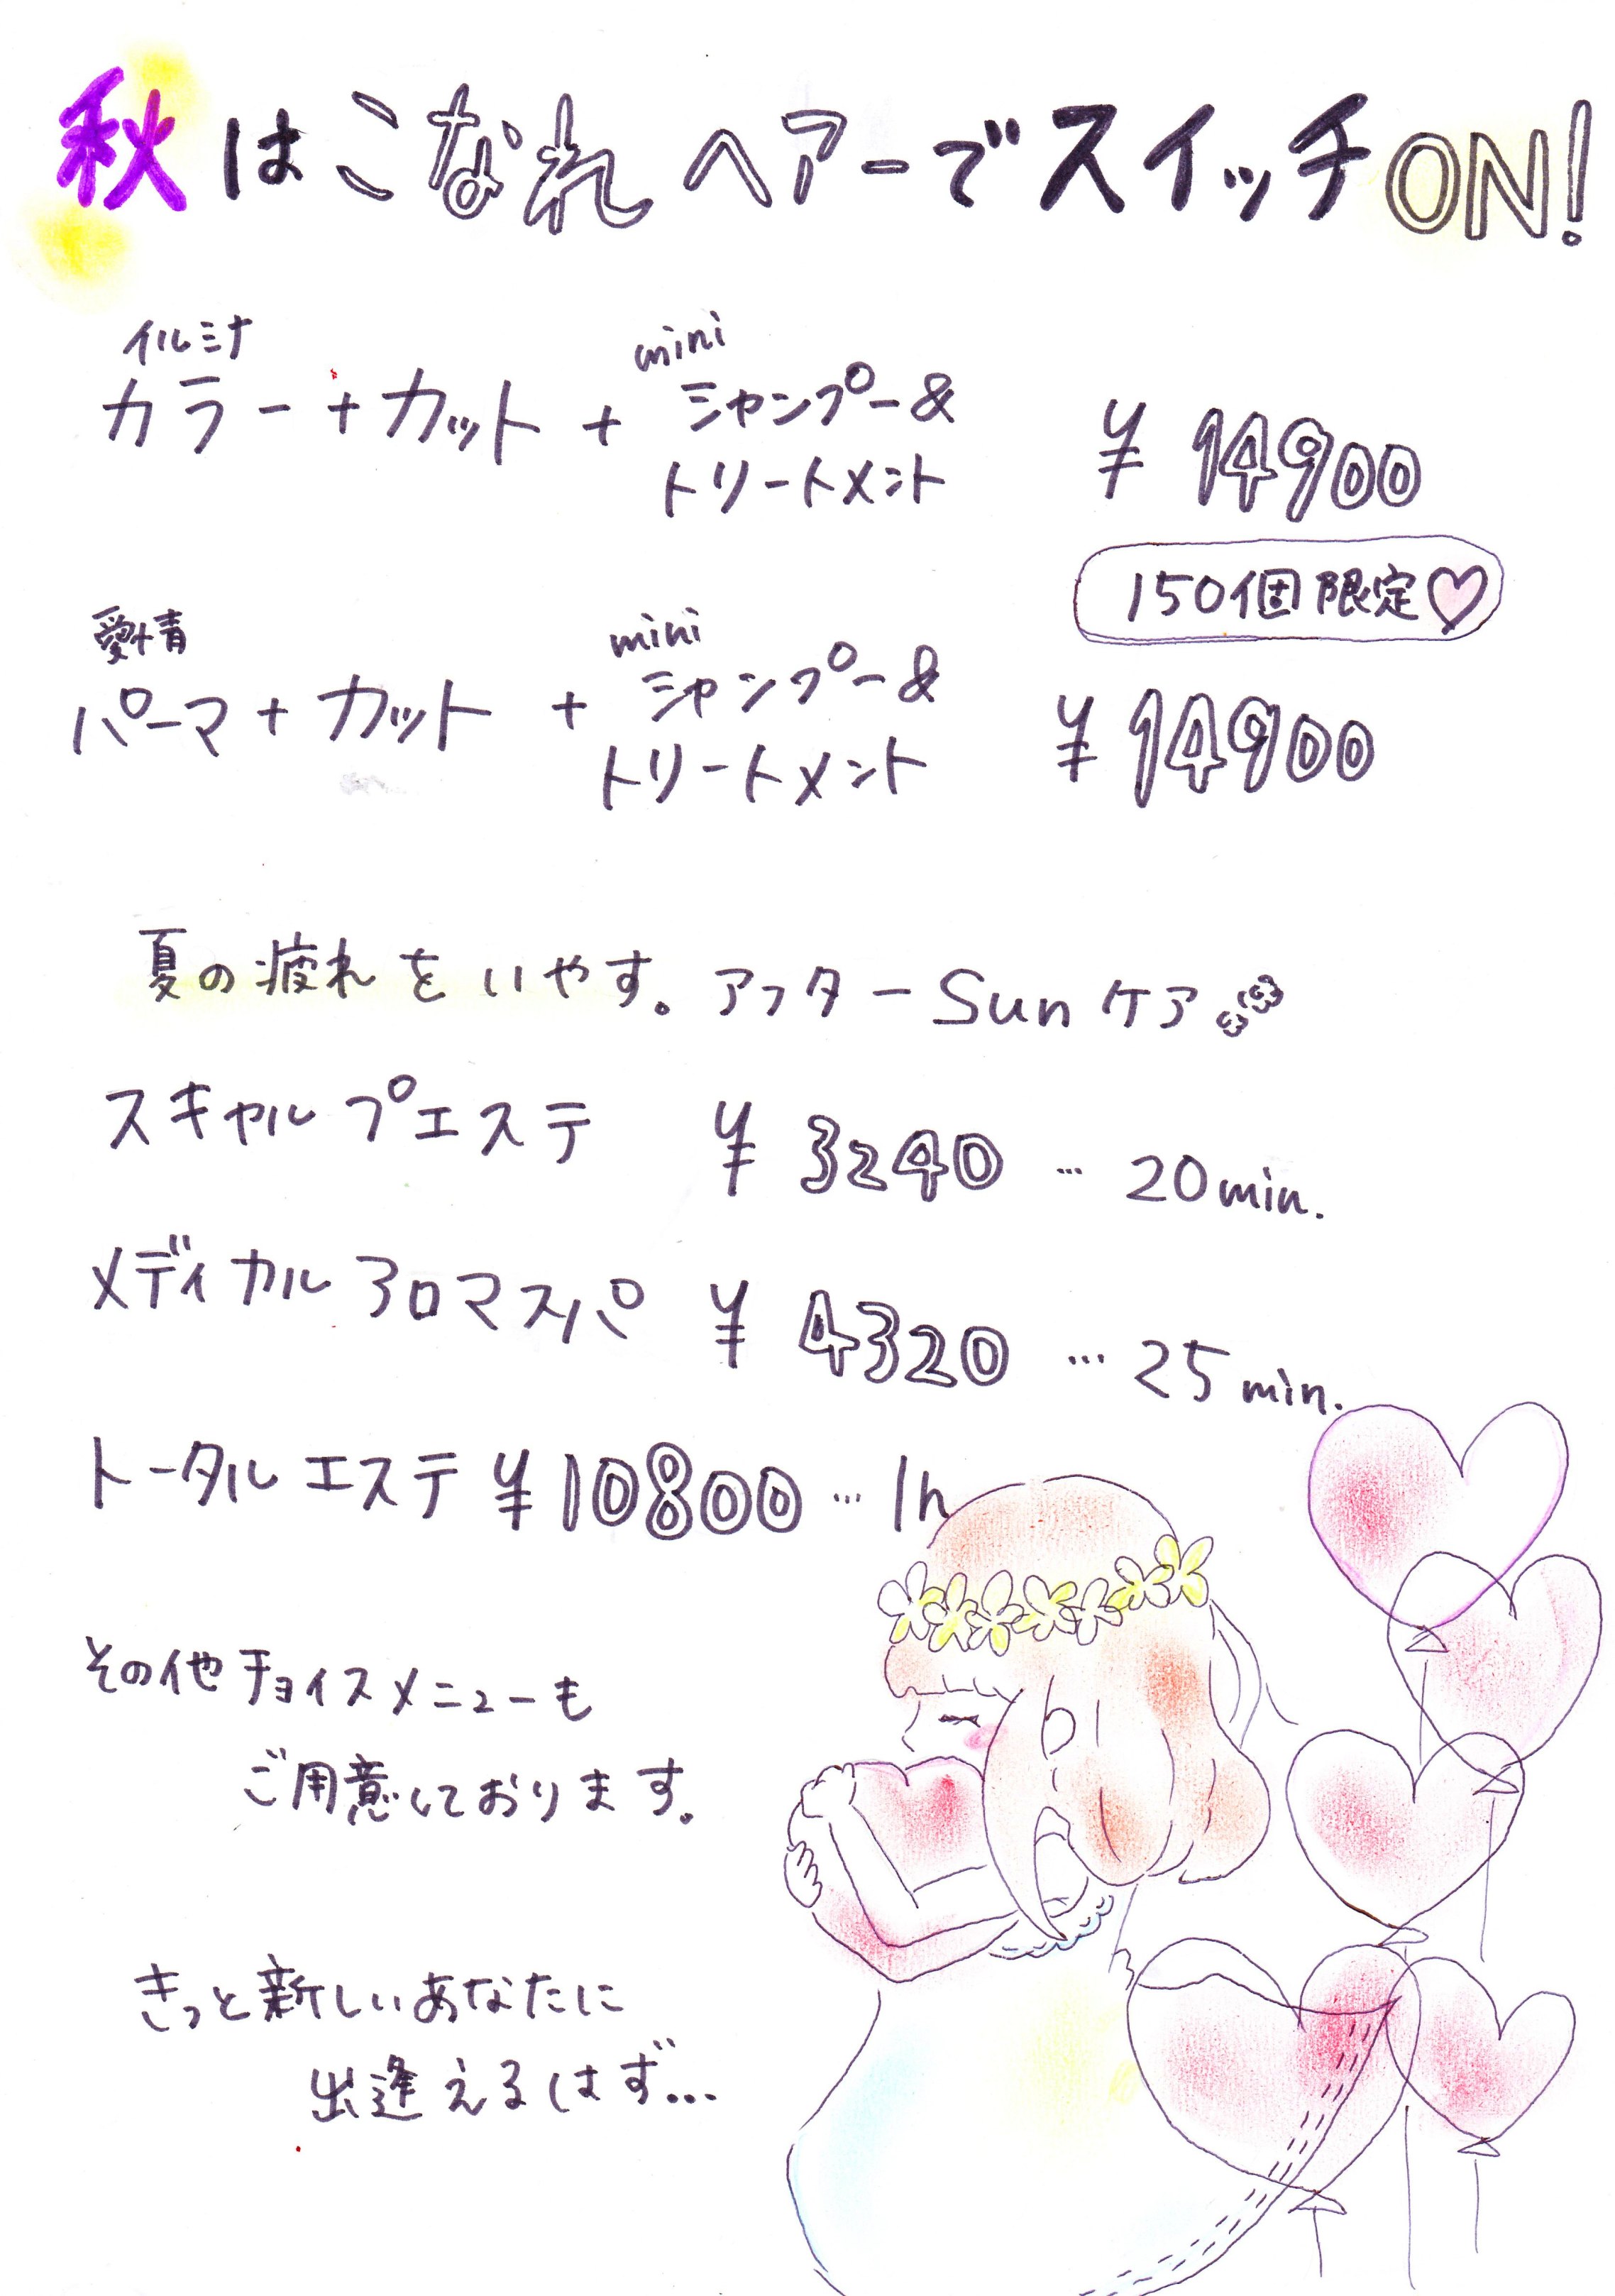 秋はこなれヘアーでスイッチON!
イルミナ
カラー+カット+mini シャンプー&
トリートメント ¥14900
150個限定♡
愛情
パーマ+カット+mini シャンプー&
トリートメント ¥14900
夏の疲れをいやす。アフターSunケア
スキャルプエステ ¥3240…20min.
メディカルアロマスパ ¥4320…25min.
トータルエステ ¥10800…1h
その他チョイスメニューも
ご用意しております。
きっと新しいあなたに
出逢えるはず…